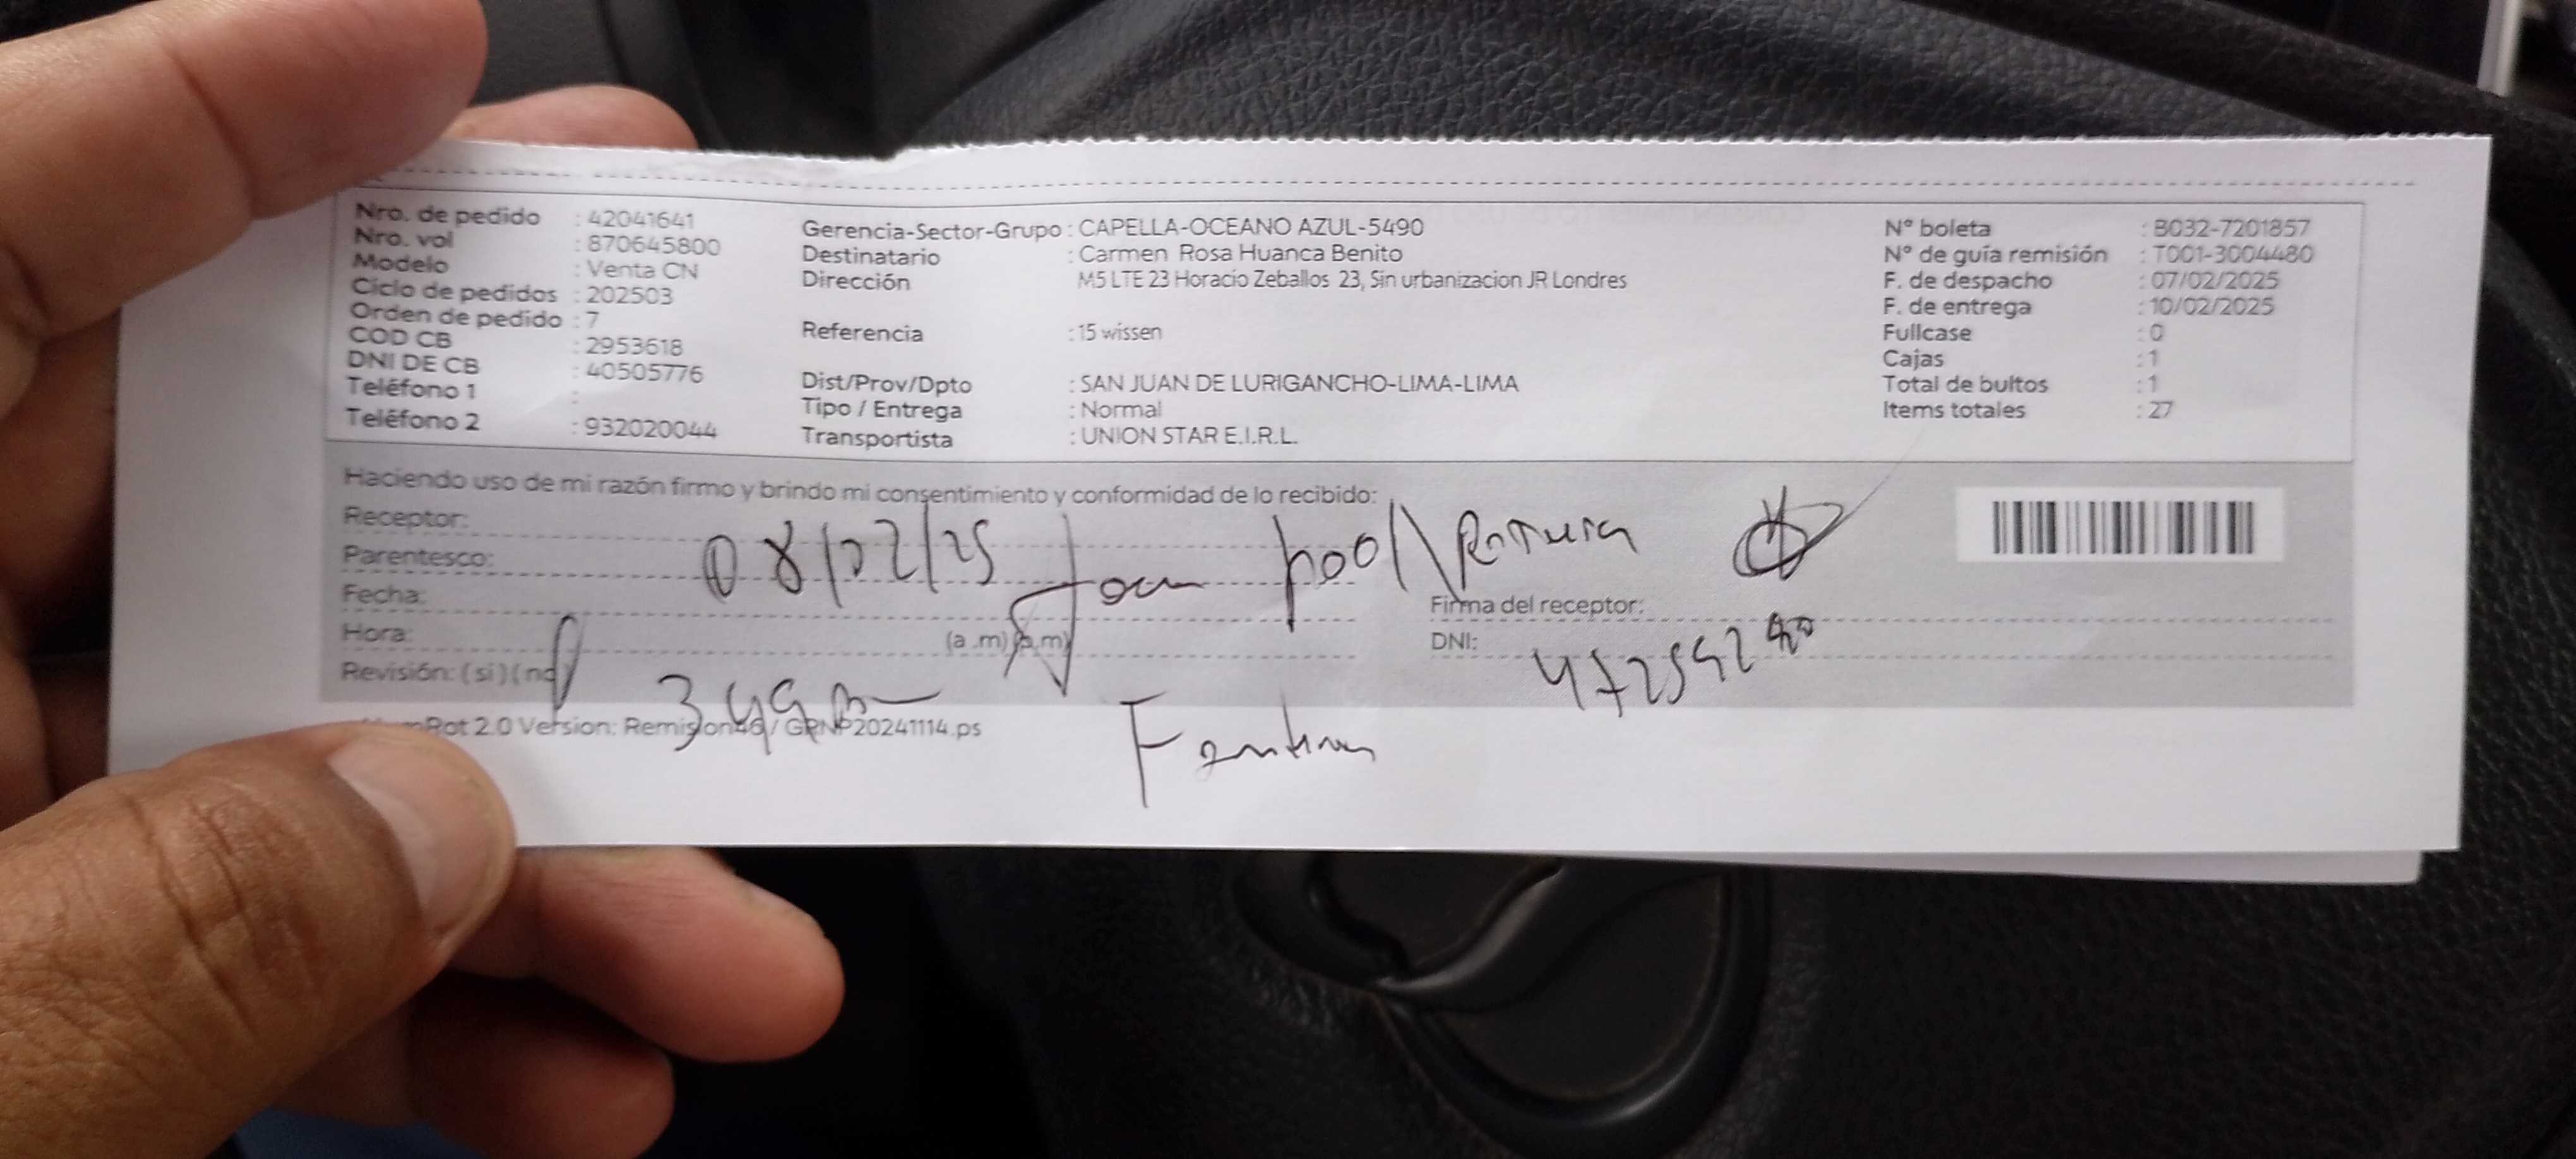 Nro. de pedido : 42041641
Nro. vol : 870645800
Modelo : Venta CN
Ciclo de pedidos : 202503
Orden de pedido : 7
COD CB : 2953618
DNI DE CB : 40505776
Teléfono 1 :
Teléfono 2 : 932020044
Gerencia-Sector-Grupo : CAPELLA-OCEANO AZUL-5490
Destinatario : Carmen Rosa Huanca Benito
Dirección M5 LTE 23 Horacio Zeballos 23, Sin urbanizacion JR Londres
Referencia : 15 wissen
Dist/Prov/Dpto : SAN JUAN DE LURIGANCHO-LIMA-LIMA
Tipo / Entrega : Normal
Transportista : UNION STAR E.I.R.L.
N° boleta : B032-7201857
N° de guía remisión : T001-3004480
F. de despacho : 07/02/2025
F. de entrega : 10/02/2025
Fullcase : 0
Cajas : 1
Total de bultos : 1
Items totales : 27
Haciendo uso de mi razón firmo y brindo mi consentimiento y conformidad de lo recibido:
Receptor:
Parentesco:
08/02/25
Fecha:
Hora: (a.m) (p.m)
Revisión: (si) (no)
Firma del receptor:
DNI:
2.0 Version: Remision46 / GRNP20241114.ps